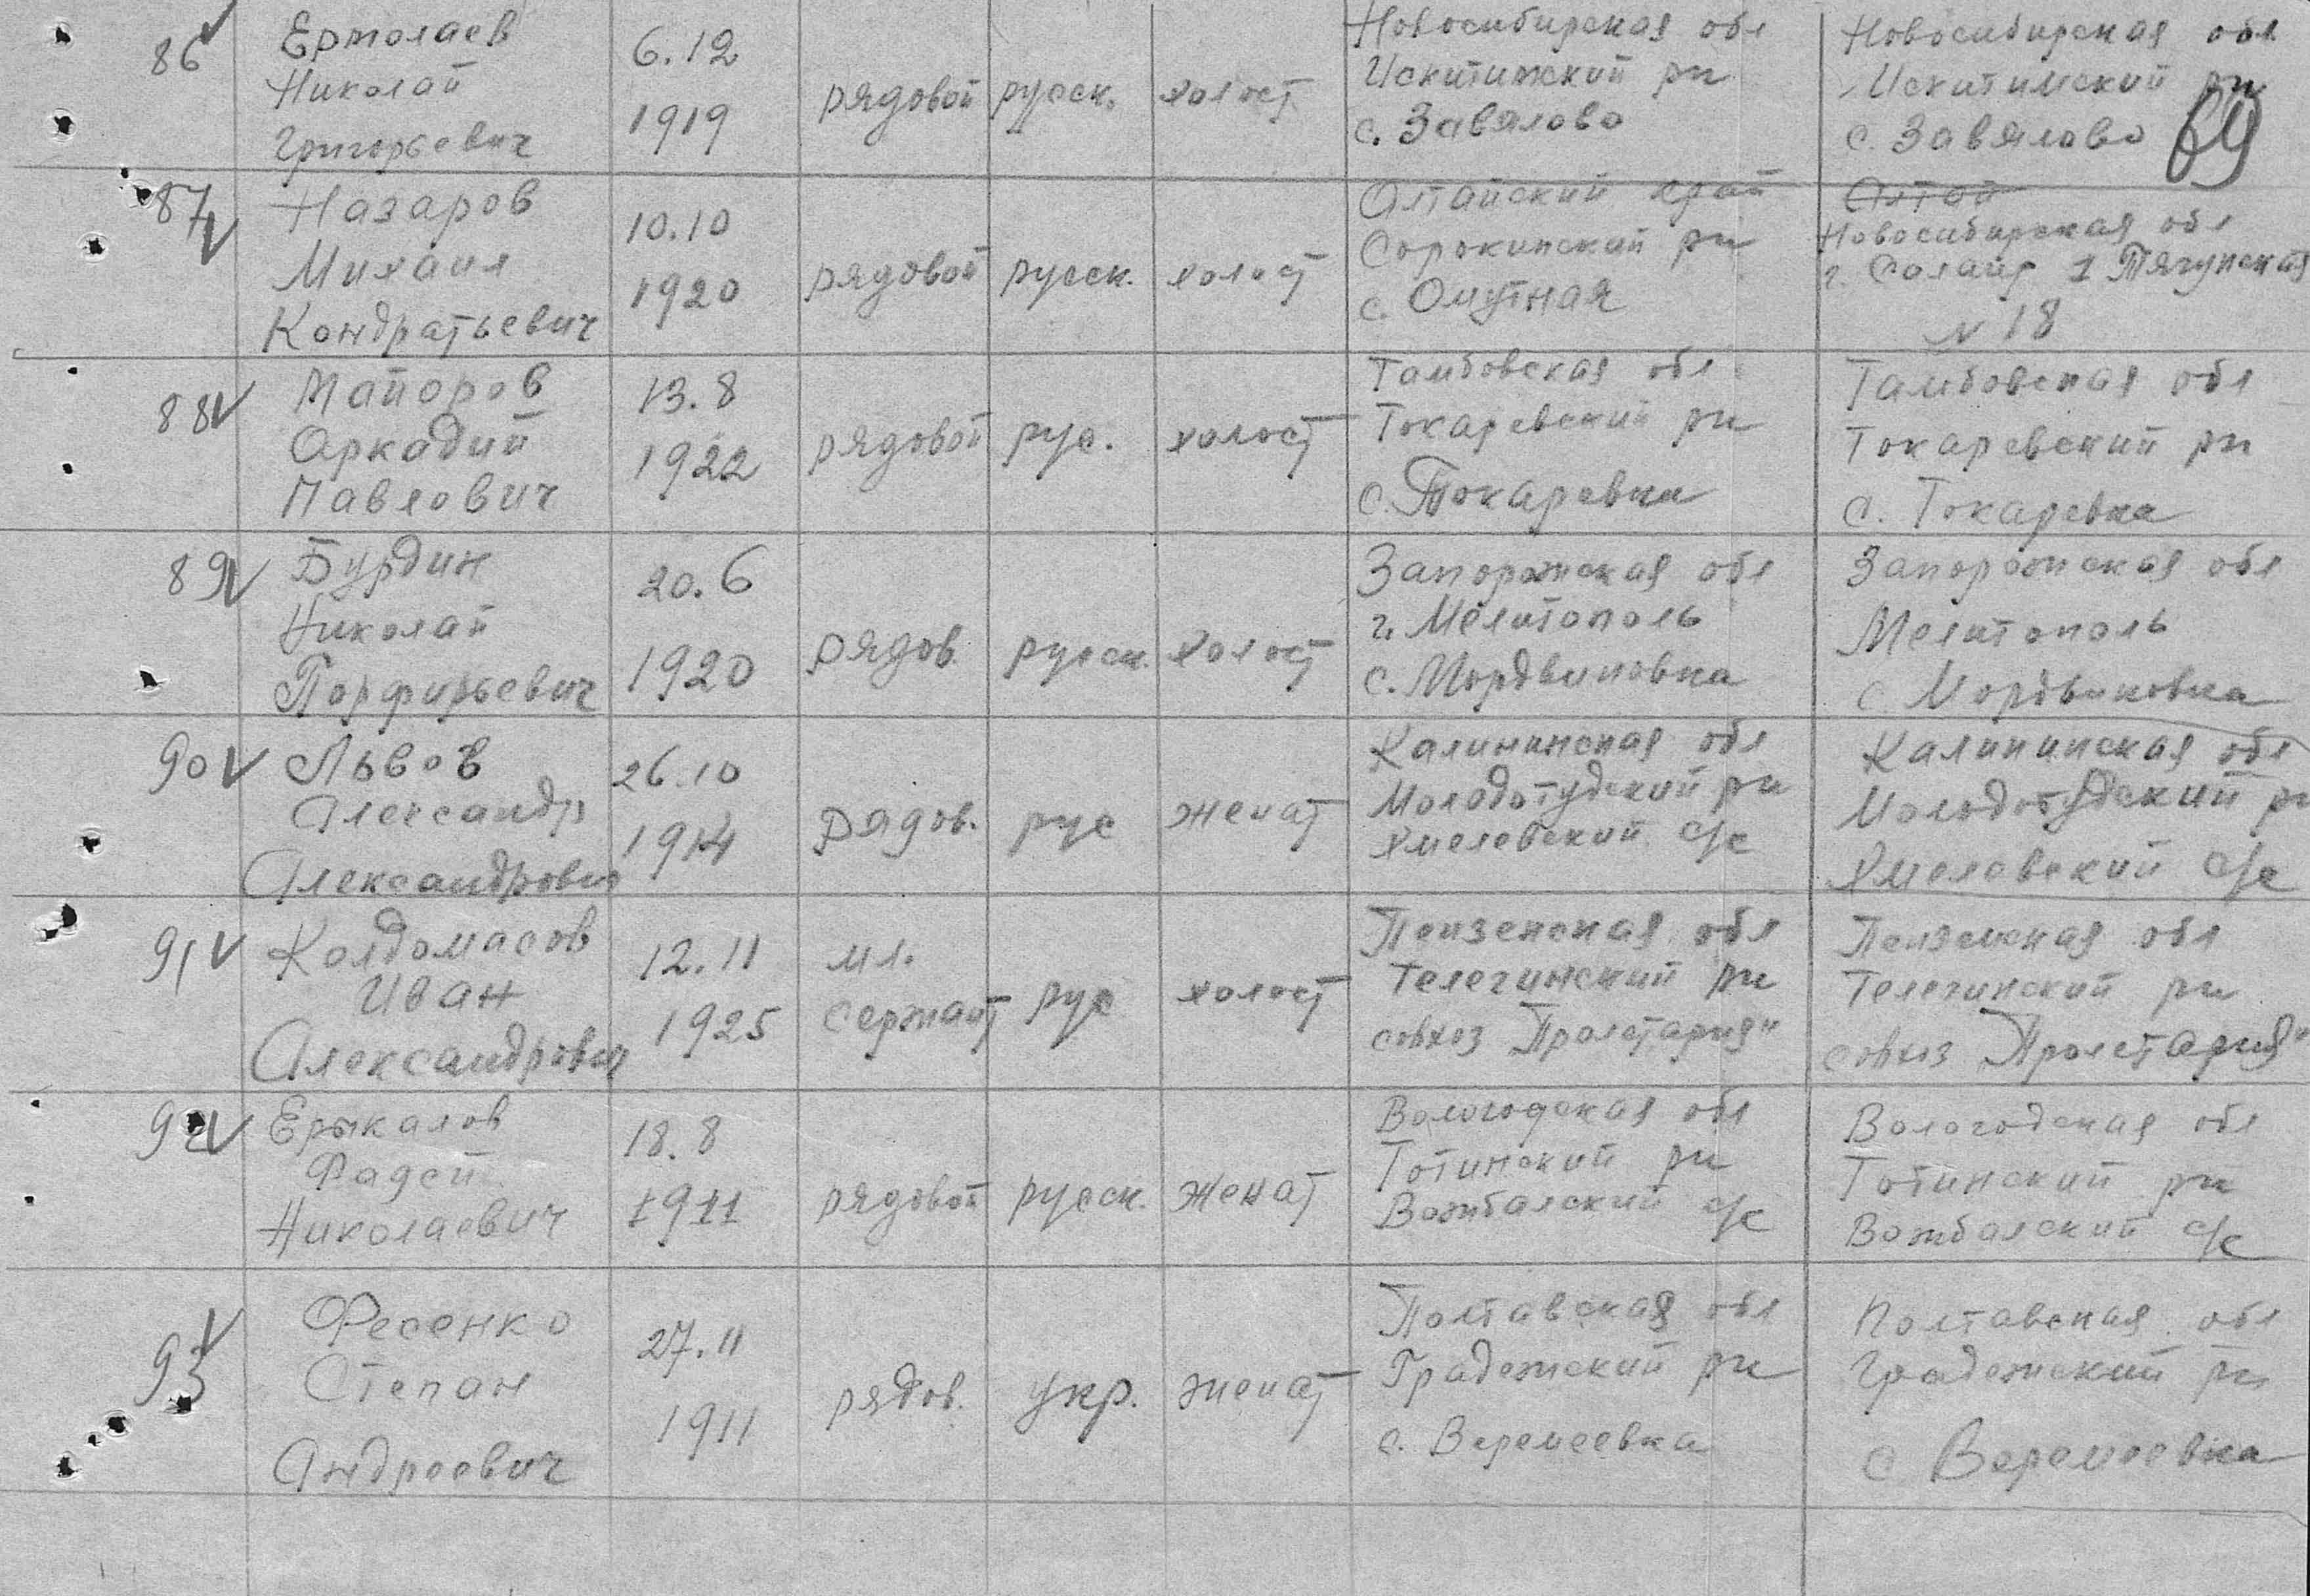 86 Ермолаев
Николай
Григорьевич
6.12
1919
рядовой
русск.
холост
Новосибирская обл
Искитимский рн
с. Завялово
Новосибирская обл.
Искитимский рн
с. Завялово
69
87 Назаров
Михаил
Кондратьевич
10.10
1920
рядовой
русск.
холост
Алтайский край
Сорокинский рн
с. Омутная
Алтай
Новосибирская обл
г. Салаир 1 Тягунская
N 18
88 Майоров
Аркадий
Павлович
13.8
1922
рядовой
рус.
холост
Тамбовская обл
Токаревский рн
с. Токаревка
Тамбовская обл
Токаревский рн
с. Токаревка
89 Бурдин
Николай
Порфирьевич
20.6
1920
рядов.
русск.
холост
Запорожская обл
г. Мелитополь
с. Мордвиновка
Запорожская обл
Мелитополь
с Мордвиновка
90 Львов
Александр
Александрович
26.10
1914
рядов.
рус
женат
Калининская обл
Молодотудский рн
Хмелевский с/с
Калининская обл
Молодотудский рн
Хмелевский с/с
91 Колдомасов
Иван
Александрович
12.11
1925
мл.
сержант
рус
холост
Пензенская обл
Телегинский рн
совхоз "Пролетария"
Пензенская обл
Телегинский рн
совхоз "Пролетария"
92 Ерыкалов
Фадей
Николаевич
18.8
1911
рядовой
русск.
женат
Вологодская обл
Тотинский рн
Вожбалский с/с
Вологодская обл
Тотинский рн
Вожбалский с/с
93 Фесенко
Степан
Андреевич
27.11
1911
рядов.
укр.
женат
Полтавская обл
Градежский рн
с. Веремеевка
Полтавская обл
Градежский рн
с Веремеевка